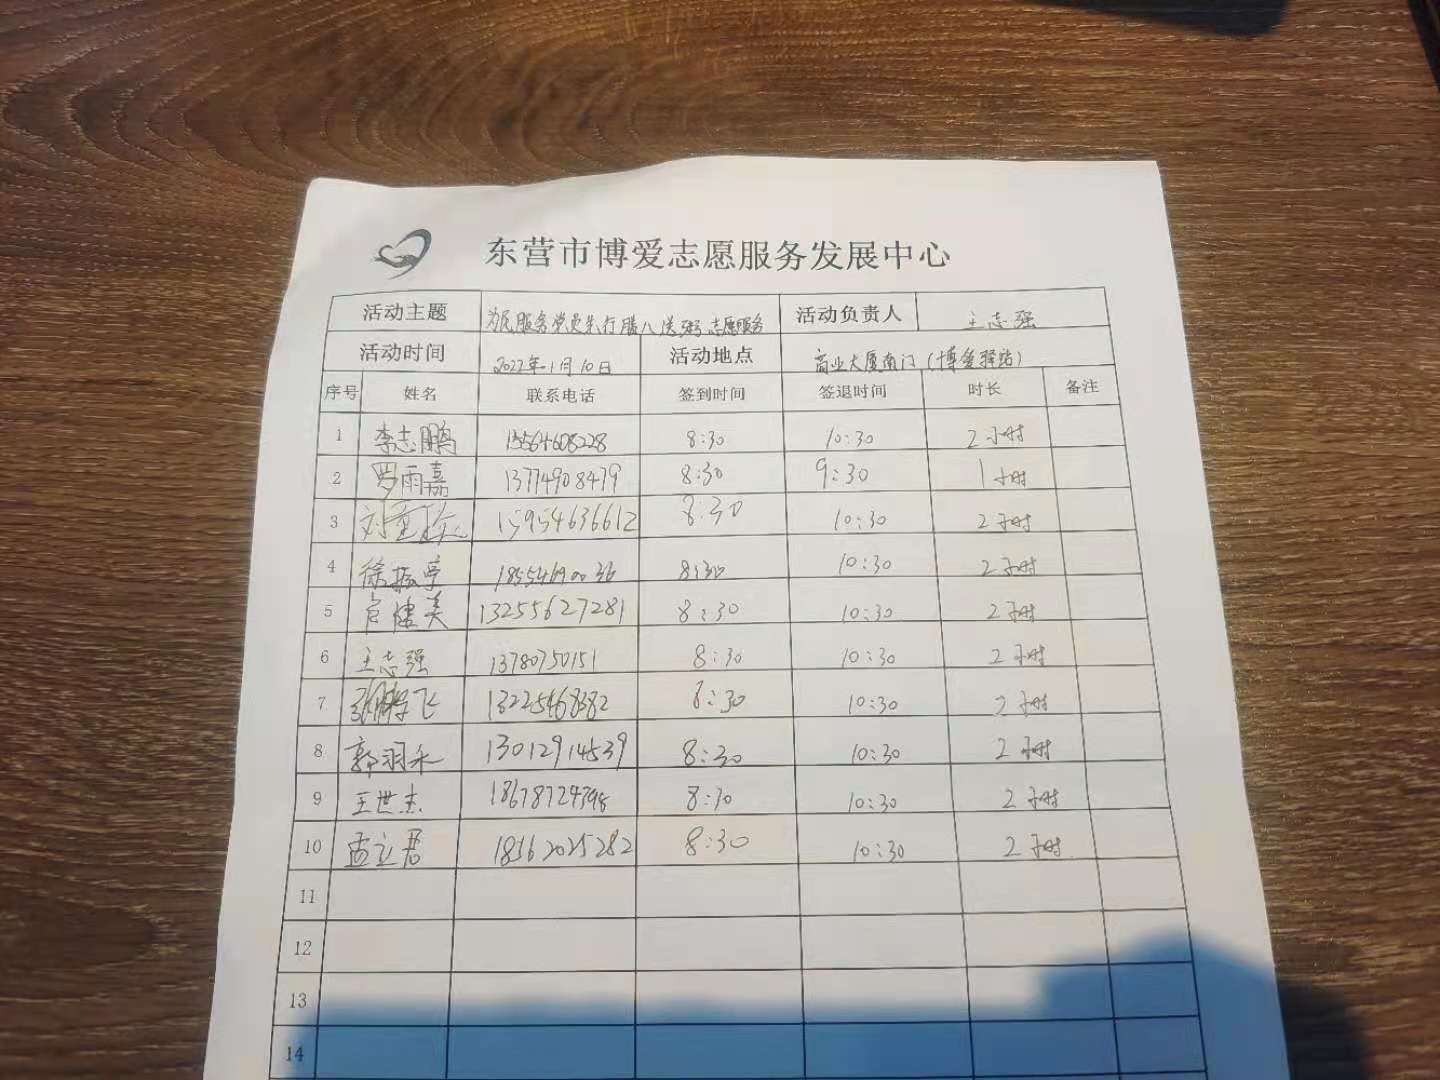 东营市博爱志愿服务发展中心
活动主题 为民服务党员先行腊八送粥志愿服务 活动负责人 王志强
活动时间 2022年1月10日 活动地点 商业大厦南门(博爱驿站)
序号 姓名 联系电话 签到时间 签退时间 时长 备注
1 李志鹏 15564608228 8:30 10:30 2小时
2 罗雨嘉 13774908479 8:30 9:30 1小时
3 15954636612 8:30 10:30 2小时
4 徐振亭 18554690036 8:30 10:30 2小时
5 官健美 13255627281 8:30 10:30 2小时
6 王志强 13780750151 8:30 10:30 2小时
7 张鹏飞 13225468382 8:30 10:30 2小时
8 郭羽禾 13012914539 8:30 10:30 2小时
9 王世杰 18678724798 8:30 10:30 2小时
10 孟立君 18562025282 8:30 10:30 2小时
11
12
13
14